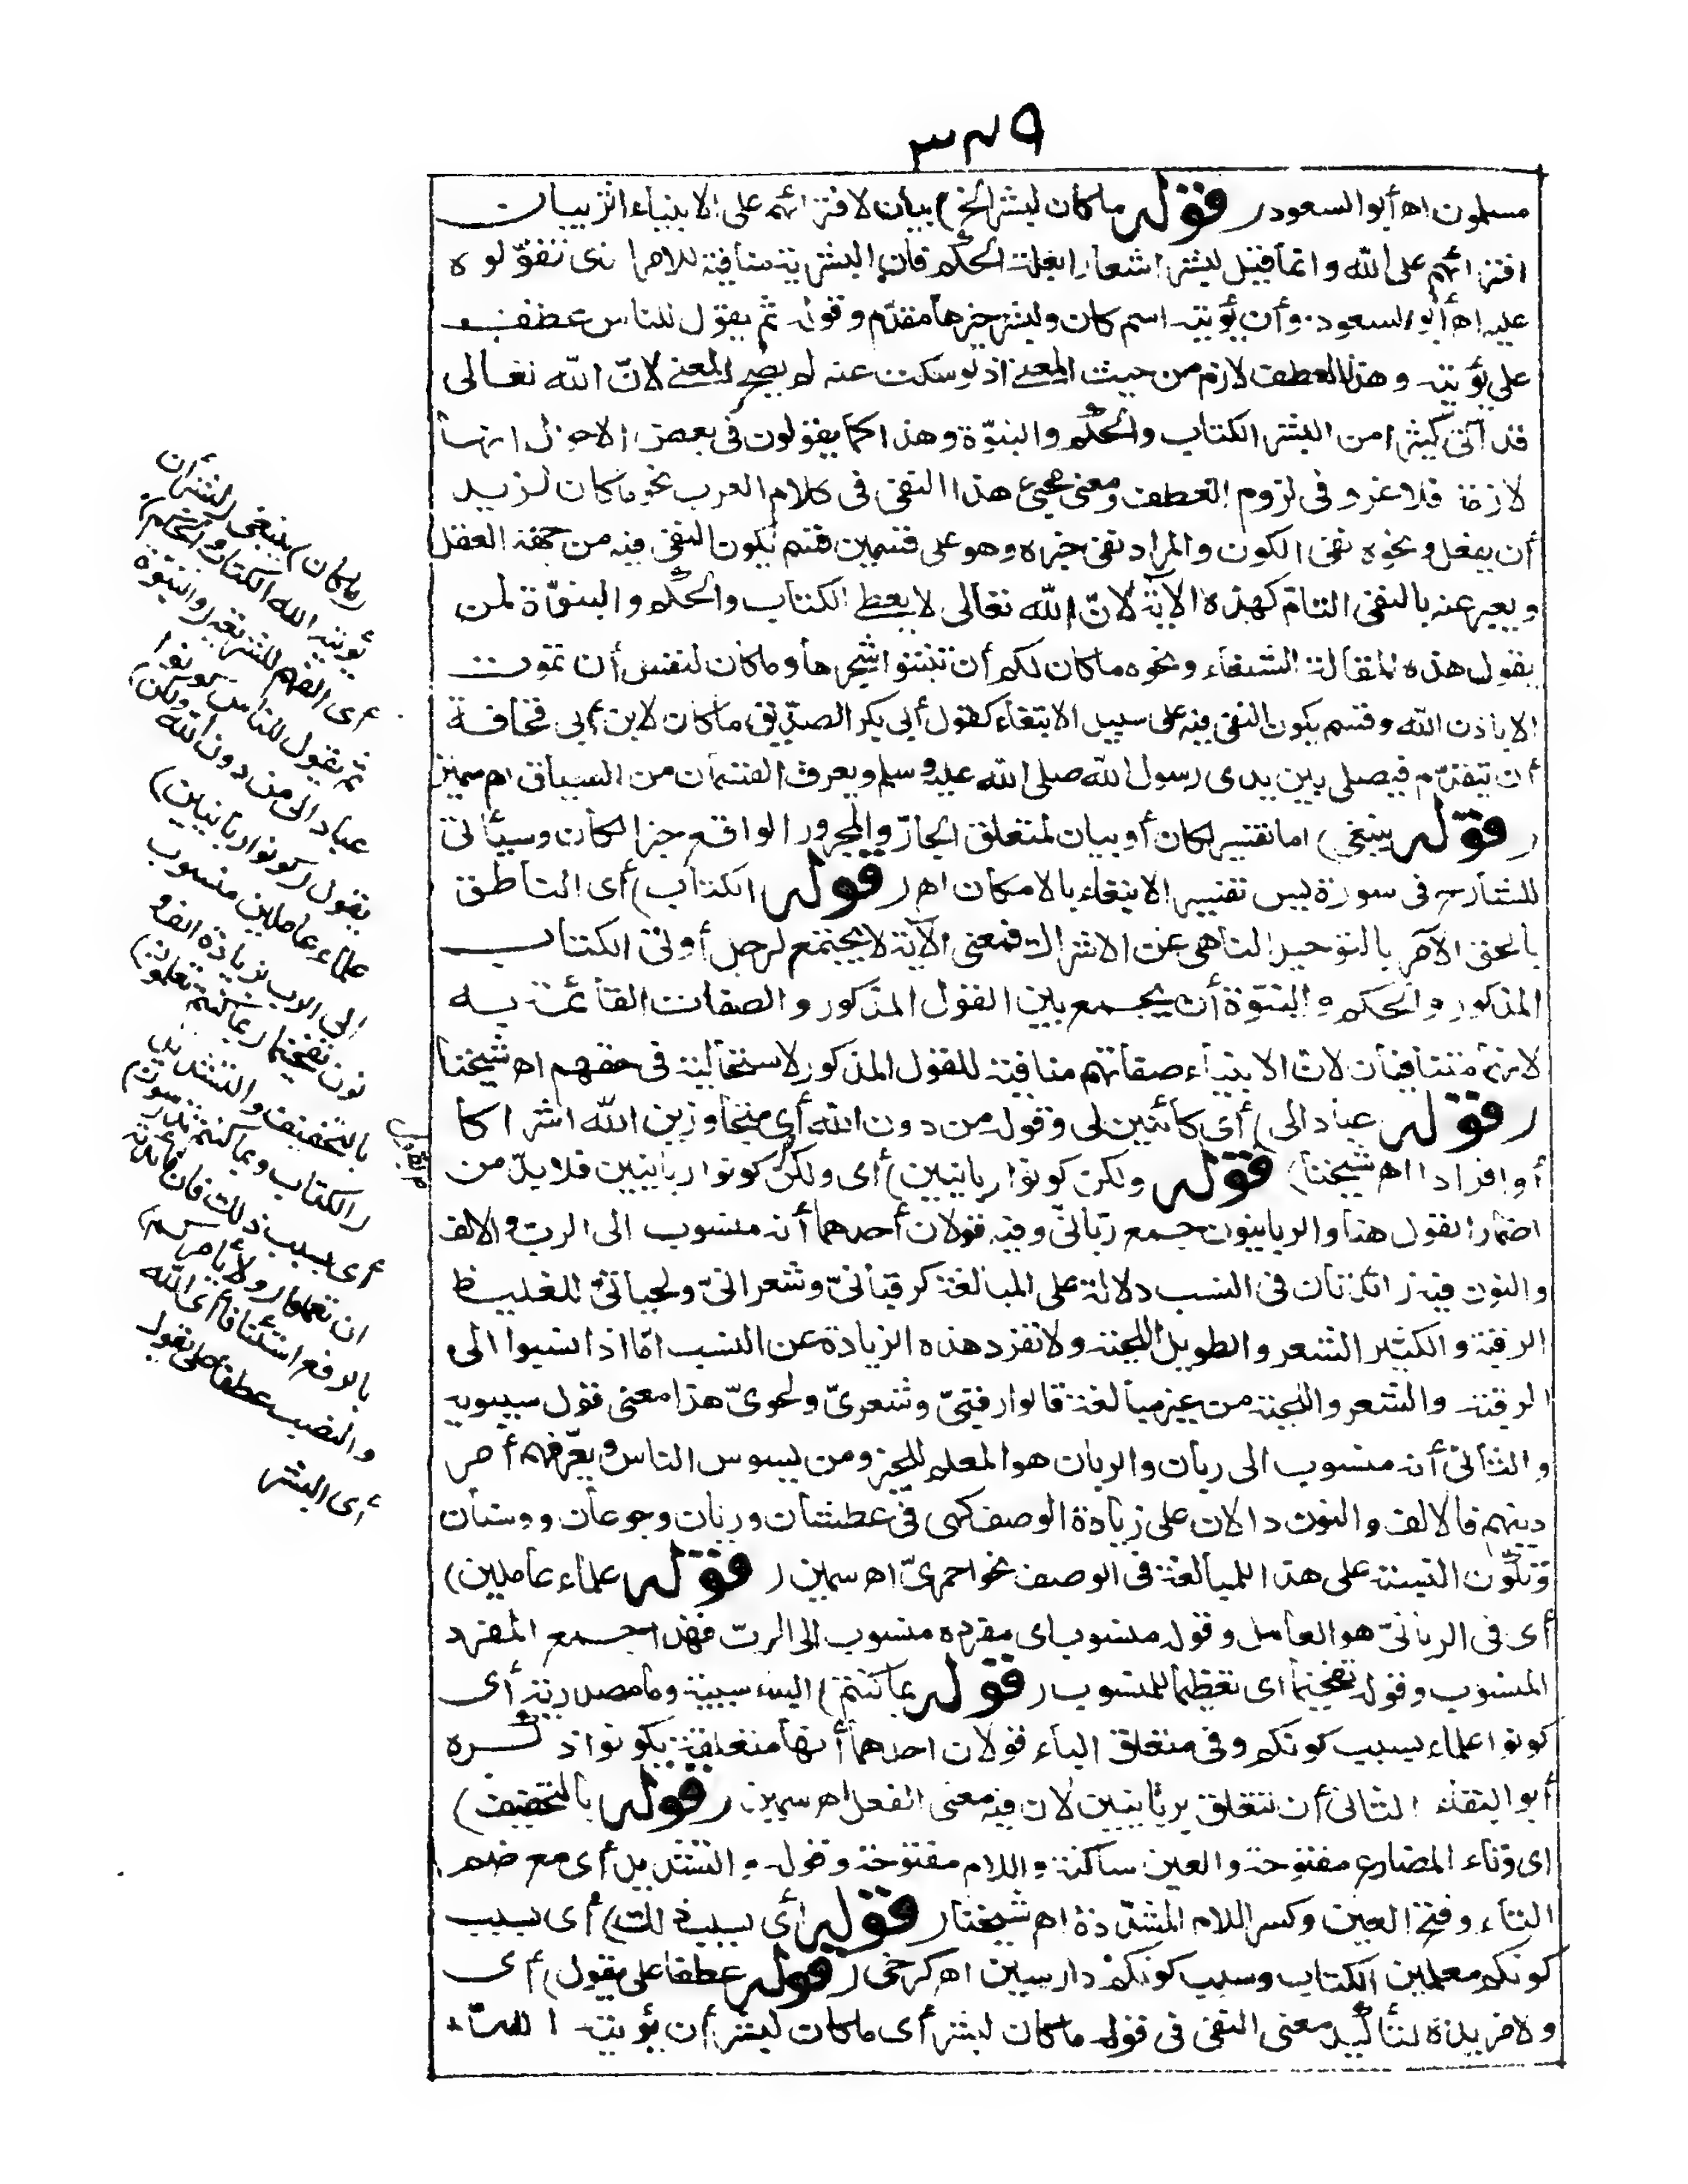 ٣٢٩
مسلمون اه أبو السعود (قوله ما كان لبشر الخ) بيان لافترائهم على الانبياء اثر بيان
افترائهم على الله وانما قيل لبشر اشعارا بعلة الحكم فان البشرية منافية للامر الذى تقوّلوه
عليه اه أبو السعود. وأن يؤتيه اسم كان ولبشر خبرها مقدّم وقوله ثم يقول للناس عطف
على يؤتيه وهذا العطف لازم من حيث المعنى اذ لو سكت عنه لم يصح المعنى لانّ الله تعالى
قد آتى كثيرا من البشر الكتاب والحكم والنبوّة وهذا كما يقولون فى بعض الاحوال انها
لازمة فلا غرو فى لزوم العطف ومعنى مجىء هذا النفى فى كلام العرب نحو ما كان لزيد
أن يفعل ونحوه نفى الكون والمراد نفى خبره وهو على قسمين قسم يكون النفى فيه من جهة العقل
ويعبر عنه بالنفى التام كهذه الآية لانّ الله تعالى لا يعطى الكتاب والحكم والنبوّة لمن
يقول هذه المقالة الشنعاء ونحوه ما كان لكم أن تنبتوا شجرها وما كان لنفس أن تموت
الا باذن الله وقسم يكون النفى فيه على سبيل الابتغاء كقول أبى بكر الصدّيق ما كان لابن أبى قحافة
أن يتقدّم فيصلى بين يدى رسول الله صلى الله عليه وسلم ويعرف القسمان من السياق اه سمين
(قوله ينبغى) اما تفسير لكان أو بيان لمتعلق الجارّ والمجرور الواقع خبرا لكان وسيأتى
للشارح فى سورة يس تفسير الابتغاء بالامكان اه (قوله الكتاب) أى الناطق
بالحق الآمر بالتوحيد الناهى عن الاشراك فمعنى الآية لا يجتمع لرجل أوتى الكتاب
المذكور والحكم والنبوّة أن يجمع بين القول المذكور والصفات القائمة به
لانهما متنافيان لان الانبياء صفاتهم منافية للقول المذكور لاستحالته فى حقهم اه شيخنا
(قوله عبادا لى) أى كائنين لى وقوله من دون الله أى متجاوزين الله اشراكا
أو افرادا اه شيخنا (قوله ولكن كونوا ربانيين) أى ولكن يقول كونوا ربانيين فلا بدّ من
اضمار القول هنا والربانيون جمع ربّانىّ وفيه قولان أحدهما أنه منسوب الى الرب والالف
والنون فيه زائدتان فى النسب دلالة على المبالغة كرقبانىّ وشعرانىّ ولحيانىّ للغليظ
الرقبة والكثير الشعر والطويل اللحية ولا تفرد هذه الزيادة عن النسب امّا اذا نسبوا الى
الرقبة والشعر واللحية من غير مبالغة قالوا رقبىّ وشعرىّ ولحوىّ هذا معنى قول سيبويه
والثانى أنه منسوب الى ربان والربان هو المعلم للخير ومن يسوس الناس ويعرّفهم أمر
دينهم فالالف والنون دالان على زيادة الوصف كهى فى عطشان وريان وجوعان ووسنان
وتكون النسبة على هذا للمبالغة فى الوصف نحو احمرىّ اه سمين (قوله علماء عاملين)
أى فى الربانىّ هو العامل وقوله منسوب اى مفرده منسوب الى الربّ فهذا جمع المفرد
المنسوب وقوله تفخيما اى تعظيما للمنسوب (قوله بما كنتم) الباء سببية وما مصدرية أى
كونوا علماء بسبب كونكم وفى متعلق الباء قولان احدهما أنها متعلقة بكونوا ذكره
أبو البقاء الثانى أن تتعلق بربانيين لان فيه معنى الفعل اه سمين (قوله بالتخفيف)
اى وتاء المضارع مفتوحة والعين ساكنة واللام مفتوحة وقوله والتشديد أى مع ضم
التاء وفتح العين وكسر اللام المشدّدة اه شيخنا (قوله أى بسبب ذلك) أى بسبب
كونكم معلمين الكتاب وسبب كونكم دارسين اه كرخى (قوله عطفا على يقول) أى
ولا مزيدة لتأكيد معنى النفى فى قوله ما كان لبشر أى ما كان لبشر أن يؤتيه الله
(ما كان) ينبغى (لبشر أن
يؤتيه الله الكتاب والحكم)
أى الفهم للشريعة (والنبوّة
ثم يقول للناس كونوا
عبادا لى من دون الله ولكن)
يقول (كونوا ربانيين)
علماء عاملين منسوب
الى الرب بزيادة الف و
نون تفخيما (بما كنتم تعلمون)
بالتخفيف والتشديد
(الكتاب وبما كنتم تدرسون)
أى بسبب ذلك فان فائدته
ان تعملوا (ولا يأمركم)
بالرفع استئنافا أى الله
والنصب عطفا على يقول
أى البشر